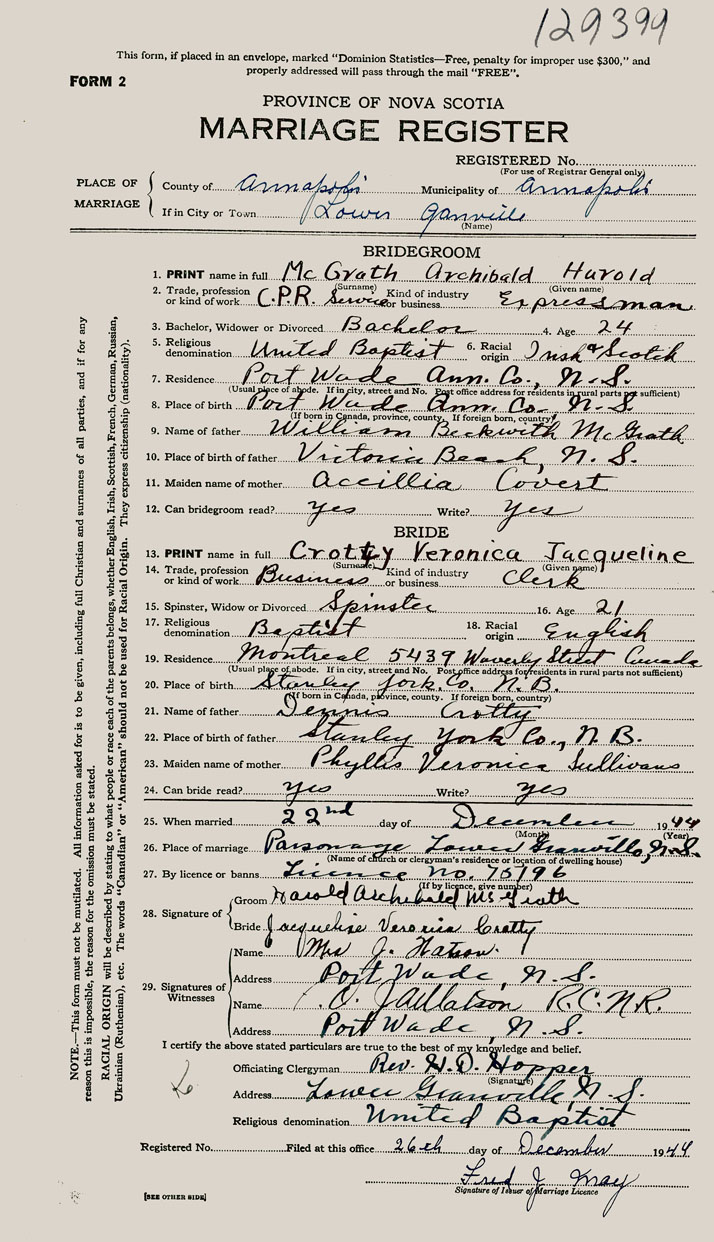 129399
This form, if placed in an envelope, marked "Dominion Statistics—Free, penalty for improper use $300," and
properly addressed will pass through the mail "FREE".
FORM 2
PROVINCE OF NOVA SCOTIA
MARRIAGE REGISTER
REGISTERED No.
(For use of Registrar General only)
PLACE OF MARRIAGE
County of Annapolis Municipality of Annapolis
If in City or Town Lower Granville
(Name)
BRIDEGROOM
1. PRINT name in full McGrath Archibald Harold
(Surname) (Given name)
2. Trade, profession or kind of work C.P.R. Service Kind of industry or business Expressman
3. Bachelor, Widower or Divorced Bachelor 4. Age 24
5. Religious denomination United Baptist 6. Racial origin Irish & Scotch
7. Residence Port Wade Ann. Co., N.S.
(Usual place of abode. If in city, street and No. Post office address for residents in rural parts not sufficient)
8. Place of birth Port Wade Ann. Co. N.S.
(If born in Canada, province, county. If foreign born, country)
9. Name of father William Beckwith McGrath
10. Place of birth of father Victoria Beach, N.S.
11. Maiden name of mother Accillia Covert
12. Can bridegroom read? yes Write? Yes
BRIDE
13. PRINT name in full Crotty Veronica Jacqueline
(Surname) (Given name)
14. Trade, profession or kind of work Business Kind of industry or business Clerk
15. Spinster, Widow or Divorced Spinster 16. Age 21
17. Religious denomination Baptist 18. Racial origin English
19. Residence Montreal 5439 Waverly Street Canada
(Usual place of abode. If in city, street and No. Post office address for residents in rural parts not sufficient)
20. Place of birth Stanley York Co. N.B.
(If born in Canada, province, county. If foreign born, country)
21. Name of father Dennis Crotty
22. Place of birth of father Stanley York Co., N.B.
23. Maiden name of mother Phyllis Veronica Sullivans
24. Can bride read? yes Write? yes
25. When married 22nd day of December 1944
(Month) (Year)
26. Place of marriage Parsonage Lower Granville, N.S.
(Name of church or clergyman's residence or location of dwelling house)
27. By licence or banns Licence No. 75196
(If by licence, give number)
28. Signature of
Groom Harold Archibald McGrath
Bride Jacqueline Veronica Crotty
29. Signatures of Witnesses
Name Mrs J. Watson
Address Port Wade, N.S.
Name Watson R.C.N.R.
Address Port Wade, N.S.
I certify the above stated particulars are true to the best of my knowledge and belief.
Officiating Clergyman Rev. H.D. Hopper
(Signature)
Address Lower Granville, N.S.
Religious denomination United Baptist
Registered No. Filed at this office 26th day of December 1944
Fred J. May
Signature of Issuer of Marriage Licence
[SEE OTHER SIDE]
NOTE.—This form must not be mutilated. All information asked for is to be given, including full Christian and surnames of all parties, and if for any
reason this is impossible, the reason for the omission must be stated.
RACIAL ORIGIN will be described by stating to what people or race each of the parents belongs, whether English, Irish, Scottish, French, German, Russian,
Ukrainian (Ruthenian), etc. The words "Canadian" or "American" should not be used for Racial Origin. They express citizenship (nationality).